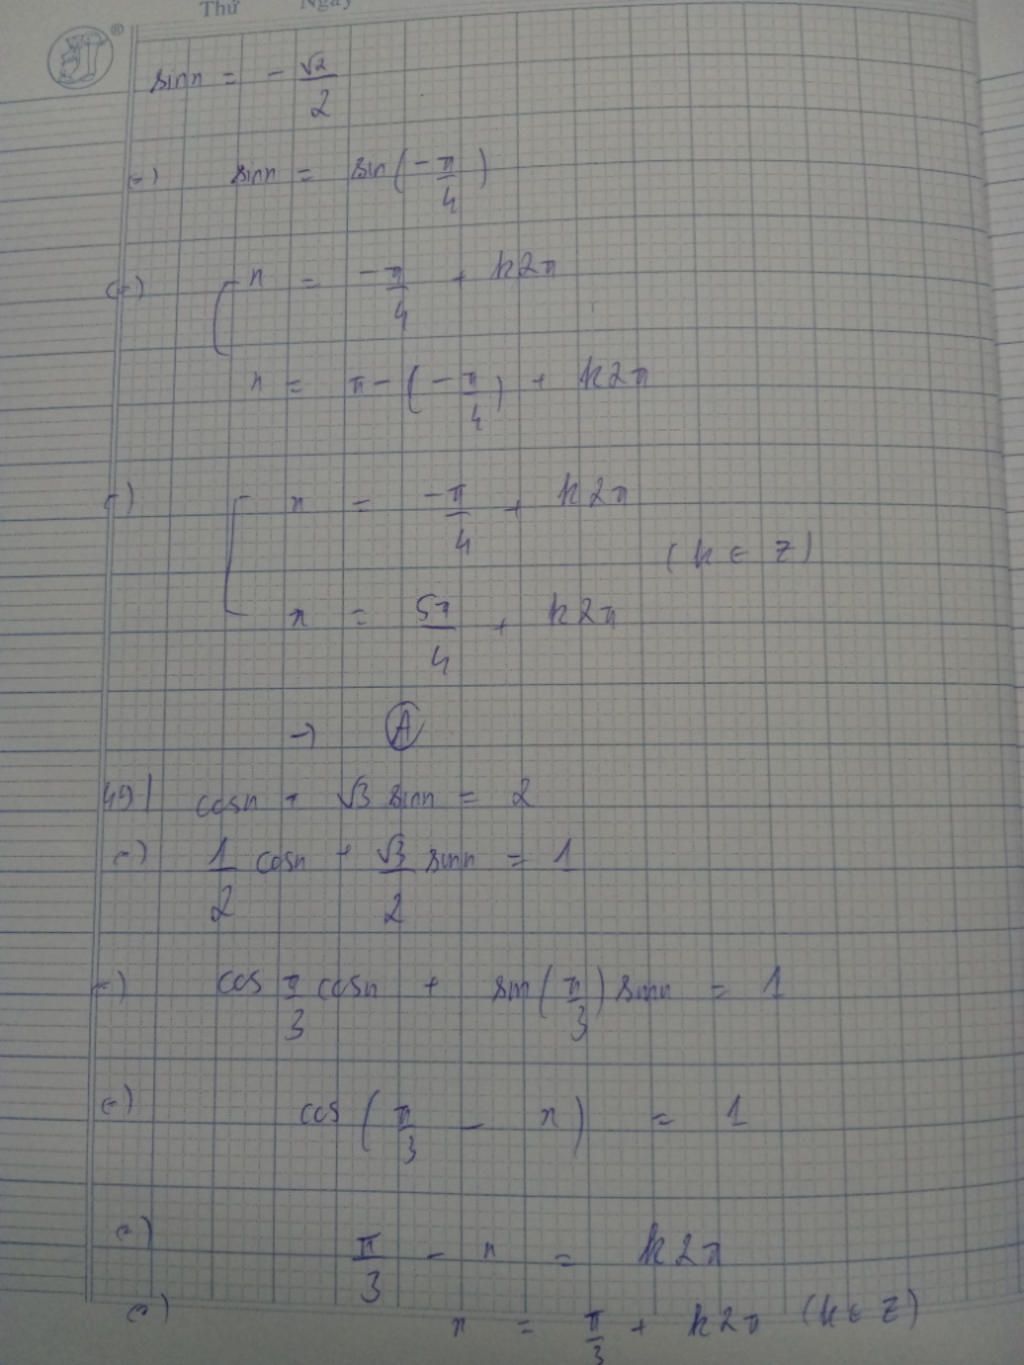 Thứ Ngày
sinx = -√2/2
(=) sinx = sin(-π/4)
(=) [ x = -π/4 + k2π
x = π - (-π/4) + k2π
(=) [ x = -π/4 + k2π
(k ∈ Z)
x = 5π/4 + k2π
→ Ⓐ
49| cosx + √3 sinx = 2
(=) 1/2 cosx + √3/2 sinx = 1
(=) cos π/3 cosx + sin(π/3) sinx = 1
(=) cos(π/3 - x) = 1
(=) π/3 - x = k2π
(=) x = π/3 + k2π (k ∈ Z)